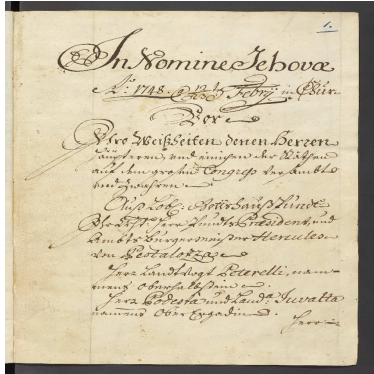 1.
In Nomine Jehovæ
Aº: 1748. Febrÿ in Chur
Vor
Ihro Weißheiten denen Herren
und einichen der Räthen
auf dem großen Congress versambt
Auß Lobl: Gottshauß Pundt
Herr Pundts Præsident, und
Ambts Burgermeister Hercules
von Pestalozza
Herr Landtvogt Peterelli, nam-
mens Oberhalbstein
Herr Podestà und Landa. Juvalta
namens Ober Engadin
Herr